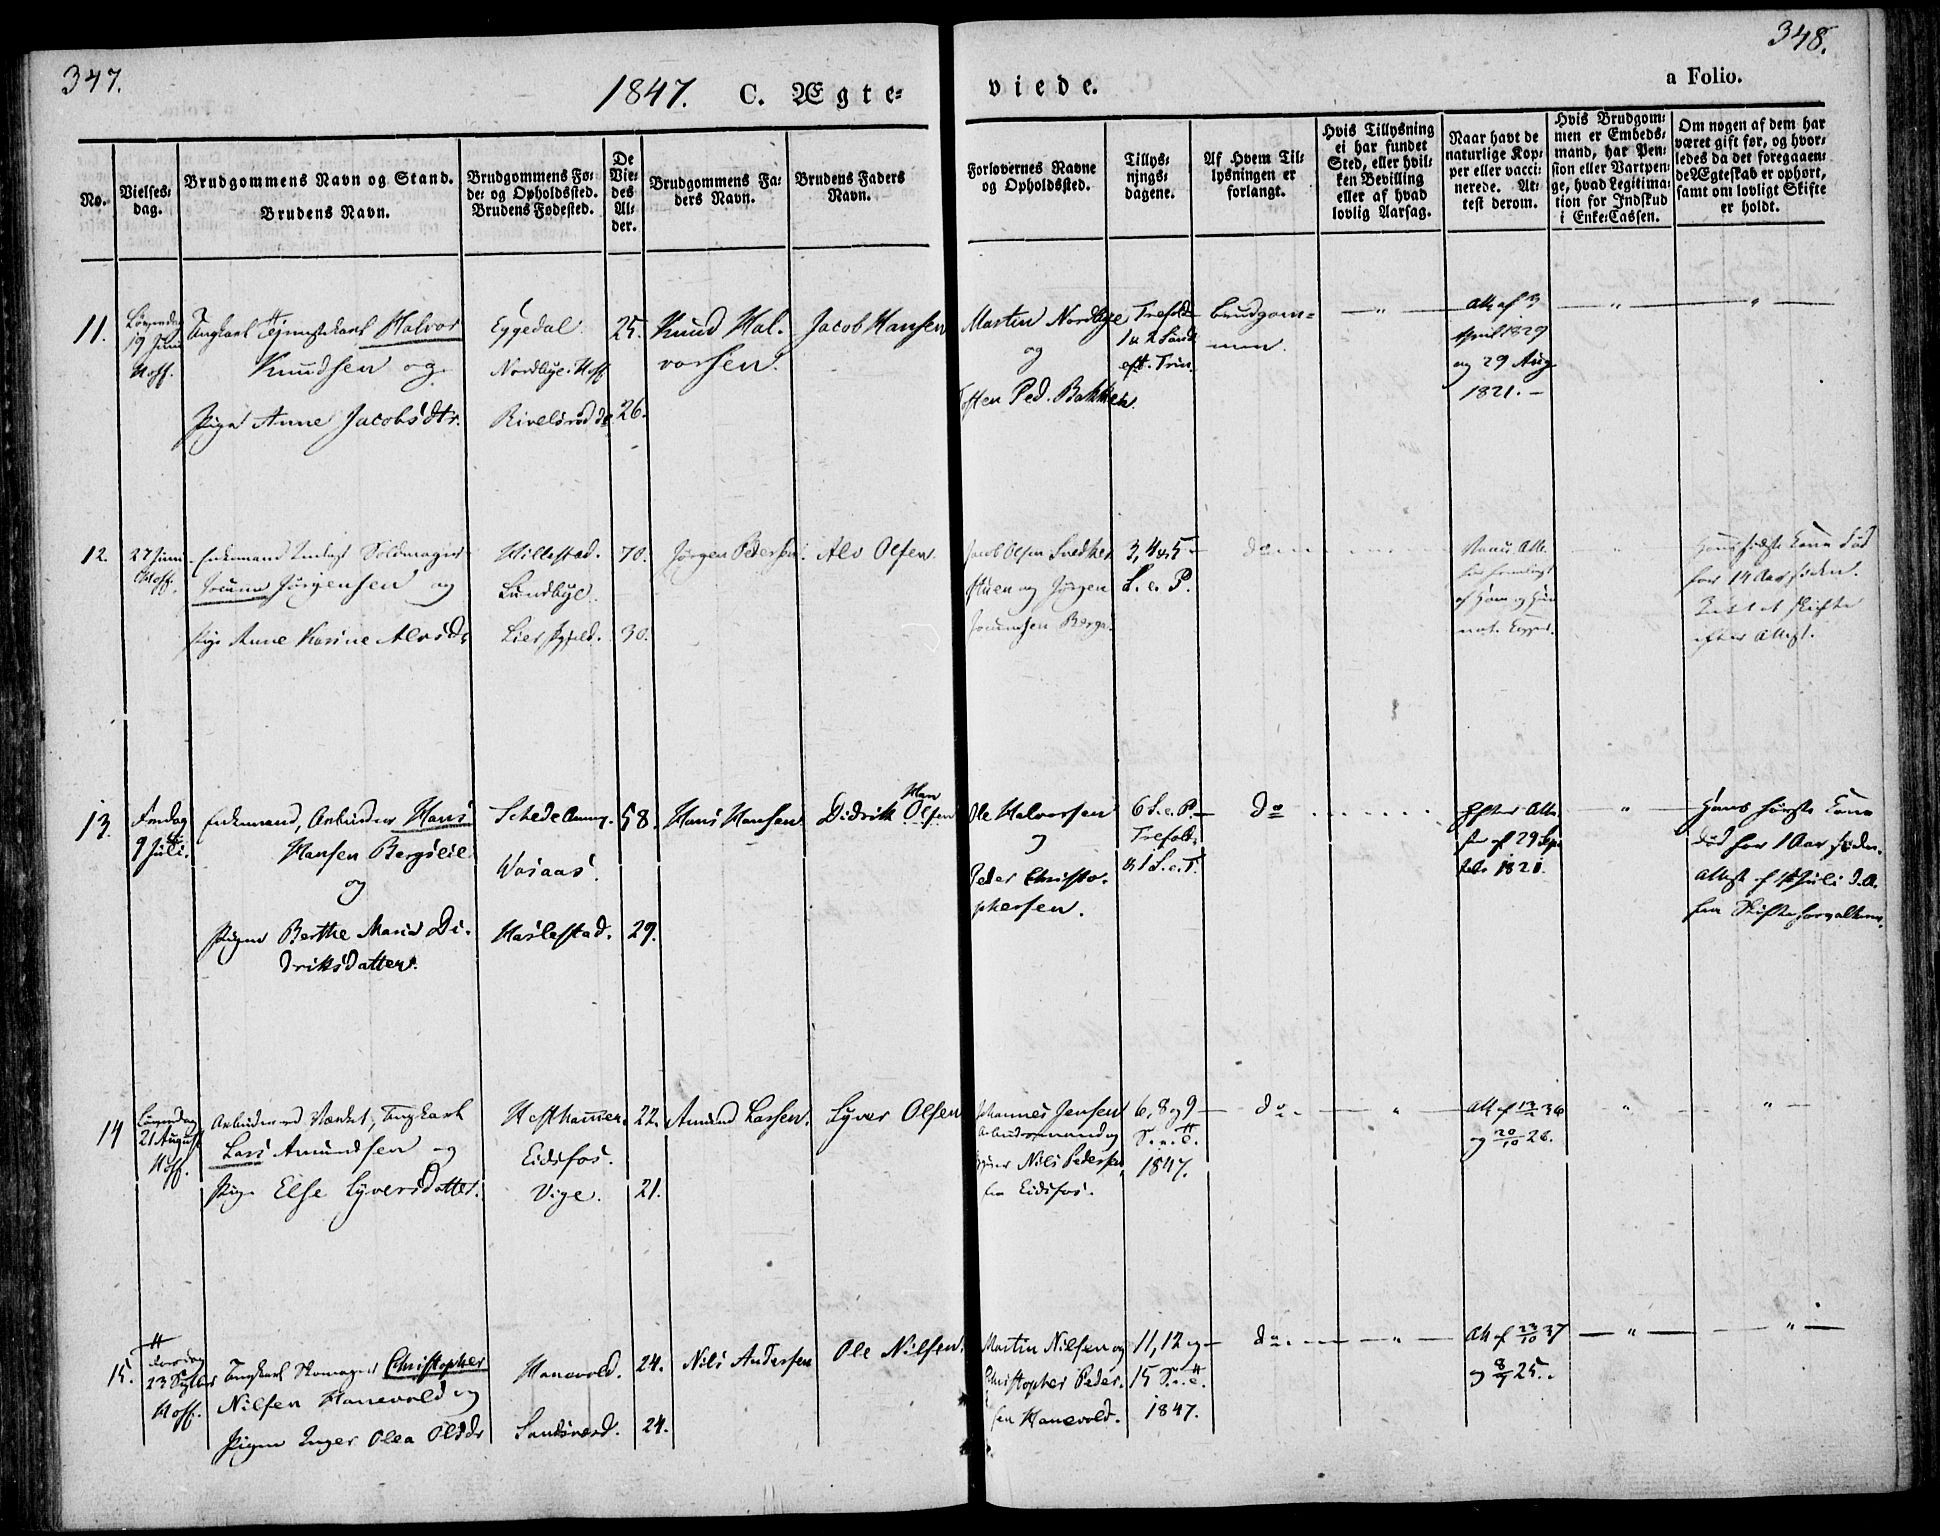 347.
348.
1847. C. Ægte=
viede.
a Folio.
No.
Vielses=
dag.
Brudgommens Navn og Stand.
Brudens Navn.
Brudgommens Fø=
de= og Opholdssted.
Brudens Fødested.
De
Vie=
des
Al=
der.
Brudgommens Fa=
ders Navn.
Brudens Faders
Navn.
Forlovernes Navne
og Opholdssted.
Tillys=
nings=
dagene.
Af Hvem Til=
lysningen er
forlangt.
Hvis Tillysning
ei har fundet
Sted, eller hvil=
ken Bevilling
eller af hvad
lovlig Aarsag.
Naar havt de
naturlige Kop=
per eller vacci=
nerede. At=
test derom.
Hvis Brudgom=
men er Embeds=
mand, har Pen=
sion eller Vartpen=
ge, hvad Legitima=
tion for Indskud
i Enke=Cassen.
Om nogen af dem har
været gift før, og hvor=
ledes da det foregaaen=
de Ægteskab er ophørt,
samt om lovligt Skifte
er holdt.
11.
Løverdag
19 Juni
Hoff.
Ungkarl Tjenestekarl Halvor
Knudsen og
Pige Anne Jacobsdtr.
Eggedal.
Nordbye. Hoff
Rivelsrød do
25.
26.
Knud Hal=
vorsen.
Jacob Hansen
Martin Nordbye
og
Toften Ped. Bakken.
Trefold.
1 u 2 Sønd.
eft. Trin.
Brudgom=
men.
Att. af 3
April 1829
og 29 Aug
1821. –
12.
27 Juni
Hoff.
Enkemand
Jørgensen og
Pige Anne Karine Alvsdr
Hillestad.
Lundbye.
Lier
70.
30.
Jørgen Pedersen.
Alv Olsen.
Jacob Olsen
og Jørgen
Berge.
3, 4 & 5
S. e. P.
do
Hans sidste Kone død
for 14 Aar siden.
Skifte
efter Attest.
13.
9 Juli.
Enkemand, Arbeider Hans
Hansen Bergseie
og
Pigen Berthe Maria Di=
driksdatter.
Vasaas.
Haslestad.
58.
29.
Hans Hansen
Didrik Olsen
Ole Halvorsen
og
Peder Christo=
phersen.
6 S. e. P.
Trefold.
& 1 S. e. T.
do
Efter Atte=
ster af 29 Sep=
tbr 1821.
Hans første Kone
død for 1 Aar siden.
Attest af 1 Juli d.A.
fra Skifteforvalteren.
14
Løverdag
21 August
Hoff.
Arbeider ved Værket, Ungkarl
Lars Amundsen og
Pige Else Lyversdatter.
Hesthammer.
Eidsfos.
Vige.
22.
21.
Amund Larsen.
Lyver Olsen
Johannes Jensen
Arbeidsmand og
Nils Pedersen
fra Eidsfos.
6, 8 og 9
S. e. T.
1847.
do
Att. af 13/ 36
og 20/10 26.
15.
23 Septbr
Hoff.
Ungkarl Skomager Christopher
Nilsen Hanevold og
Pigen Inger Olea Olsdr
Hanevold.
Sandsværd.
24.
24.
Nils Andersen
Ole Nilsen.
Martin Nilsen og
Christopher Peder=
sen Hanevold.
11, 12 og
15 S. e. T.
1847.
do
Att. af 23/10 37
og 8/ 25.